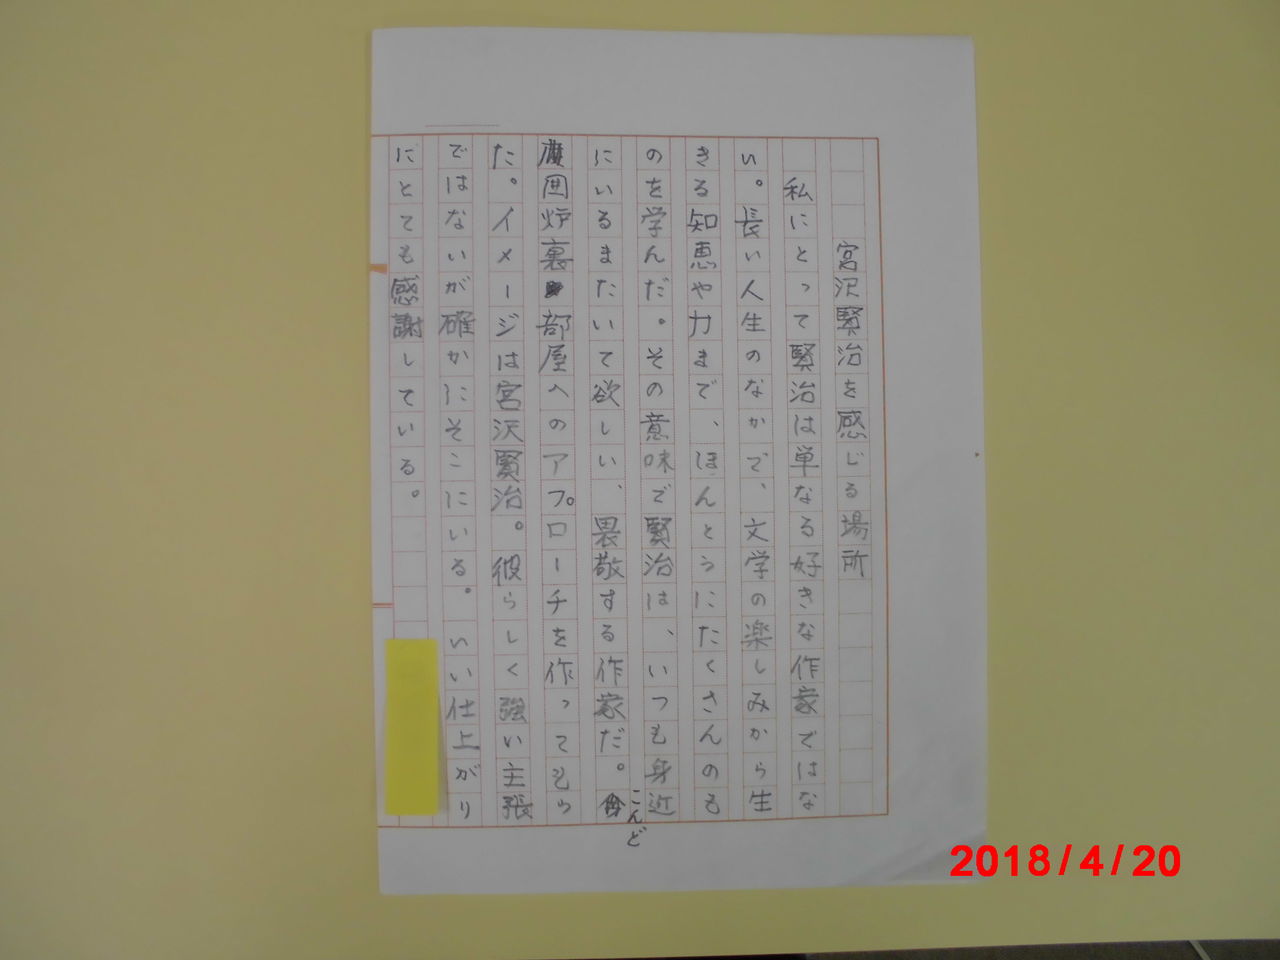 宮沢賢治を感じる場所
私にとって賢治は単なる好きな作家ではな
い。長い人生のなかで、文学の楽しみから生
きる知恵や力まで、ほんとうにたくさんのも
のを学んだ。その意味で賢治は、いつも身近
にいるまたいて欲しい、畏敬する作家だ。
こんど
囲炉裏部屋へのアプローチを作ってもらっ
た。イメージは宮沢賢治。彼らしく強い主張
ではないが確かにそこにいる。いい仕上がり
にとても感謝している。
2018/4/20